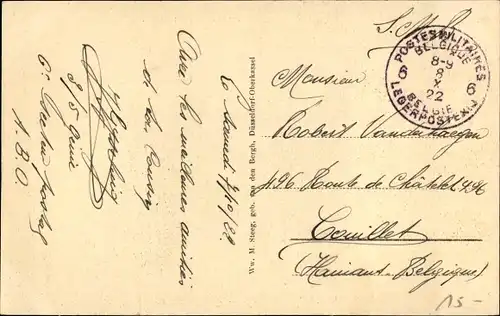 S.M.
POSTES MILITAIRES
BELGIQUE
8-9
8
X
22
6 6
BELGIE
LEGERPOSTERIJ
Monsieur
Robert Vanderhaegen
496 Route de Châtelet 496
Couillet
(Hainaut-Belgique)
15-
Ww. M. Steeg, geb. van dem Bergh, Düsseldorf-Oberkassel
Le Samedi 7/10/22
Avec les meilleures amitiés
de ton Cousin
6e Secteur postal
A.B.O